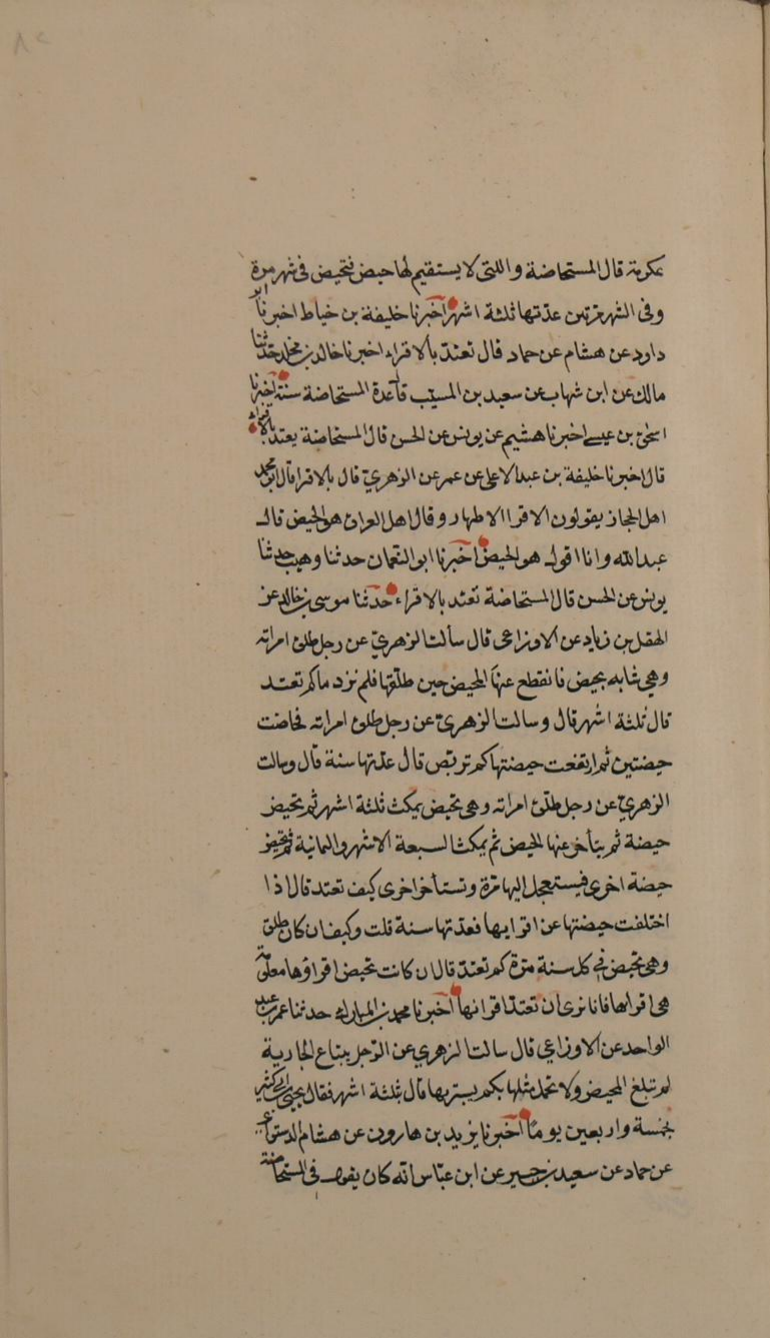 عكرمة قال المستحاضة واللتى لا يستقيم لها حيض فتحيض فى شهر مرة
وفى الشهر مرتين عدتها ثلثة اشهر اخبرنا خليفة بن خياط اخبرنا ابو
داود عن هشام عن حماد قال تعتد بالاقراء اخبرنا خالد بن مخلد حدثنا
مالك عن ابن شهاب عن سعيد بن المسيب قال عدة المستحاضة سنة اخبرنا
اسحق بن عيسى اخبرنا هشيم عن يونس عن الحسن قال المستحاضة يعتد بالاقراء
قال اخبرنا خليفة بن عبد الاعلى عن عمر عن الزهري قال بالاقرا قال ابو محمد
اهل الحجاز يقولون الاقرا الاطهار وقال اهل العراق هو الحيض قال
عبد الله وانا اقول هو الحيض اخبرنا ابو النعمان حدثنا وهيب حدثنا
يونس عن الحسن قال المستحاضة تعتد بالاقراء حدثنا موسى بن خالد عن
الهقل بن زياد عن الاوزاعى قال سألت الزهري عن رجل طلق امراته
وهي شابه يحيض فانقطع عنها المحيض حين طلقها فلم نزد ما كم تعتد
قال ثلثة اشهر قال وسالت الزهرى عن رجل طلق امراته فحاضت
حيضتين ثم ارتفعت حيضتها كم تربص قال عدتها سنة قال وسالت
الزهري عن رجل طلق امراته وهى تحيض يمكث ثلثة اشهر ثم يحيض
حيضة ثم يتأخر عنها الحيض ثم يمكث السبعة الاشهر والثمانية ثم تحيض
حيضة اخرى فيستعجل اليها مرة وتستأخر اخرى كيف تعتد قال اذا
اختلفت حيضتها عن اقرايها فعدتها سنة قلت وكيف ان كان طلق
وهى تحيض في كل سنة مرة كم تعتد قال ان كانت تحيض اقراؤها معلومة
هى اقراها فانا نرى ان تعتد اقرانها اخبرنا محمد بن المبارك حدثنا عمر بن عبد
الواحد عن الاوزاعي قال سالت الزهري عن الرجل يبتاع الجارية
لم تبلغ المحيض ولا تحمل مثلها بكم يستبريها قال ثلثة اشهر فقال يحيى بن ابى كثير
بخمسة واربعين يوما اخبرنا يزيد بن هارون عن هشام الدستوائي
عن حماد عن سعيد بن جبير عن ابن عباس انه كان يقول فى المستحاضة